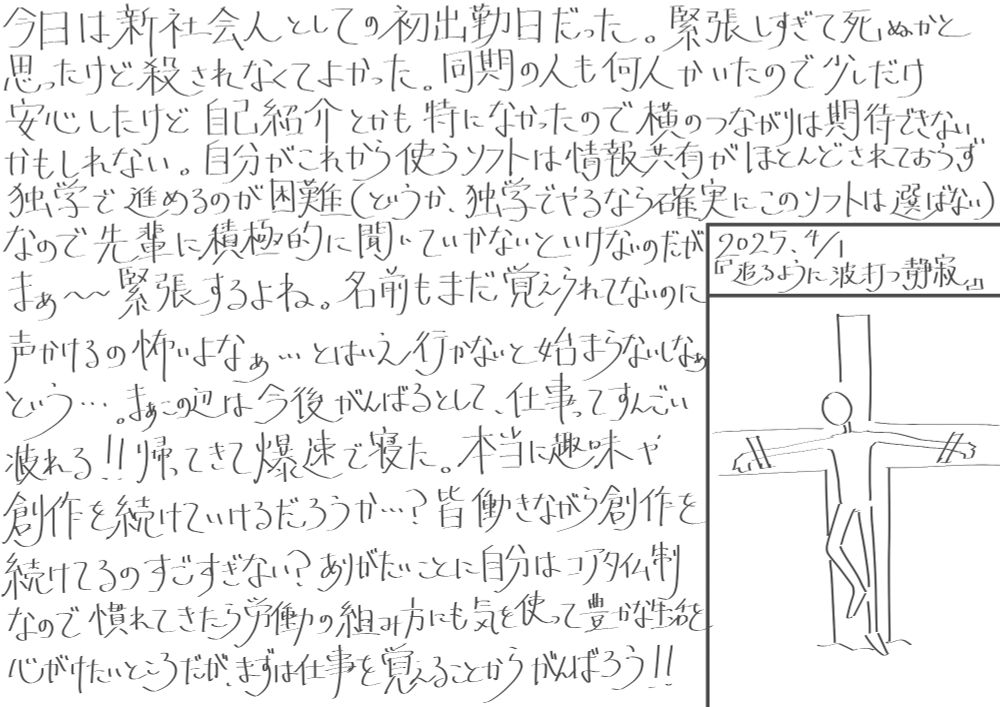 今日は新社会人としての初出勤日だった。緊張しすぎて死ぬかと
思ったけど殺されなくてよかった。同期の人も何人かいたので少しだけ
安心したけど自己紹介とかも特になかったので横のつながりは期待できない
かもしれない。自分がこれから使うソフトは情報共有がほとんどされておらず
独学で進めるのが困難(というか、独学でやるなら確実にこのソフトは選ばない)
なので先輩に積極的に聞いていかないといけないのだが
まぁ〜〜緊張するよね。名前もまだ覚えられてないのに
声かけるの怖いよなぁ…とはいえ行かないと始まらないしなぁ
という…。まぁこの辺は今後がんばるとして、仕事ってすんごい
疲れる!!帰ってきて爆速で寝た。本当に趣味や
創作を続けていけるだろうか…?皆働きながら創作を
続けてるのすごすぎない?ありがたいことに自分はコアタイム制
なので慣れてきたら労働の組み方にも気を使って豊かな生活を
心がけたいところだが、まずは仕事を覚えることからがんばろう!!
2025.4/1
『追るように波打つ静寂』